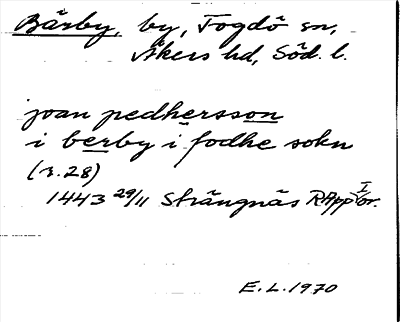 Bärby, by, Fogdö sn,
Åkers hd, Söd. l.
joan pedhersson
i berby i fodhe sokn
(r. 28)
1443 29/11 Strängnäs RApp I or.
E. L. 1970